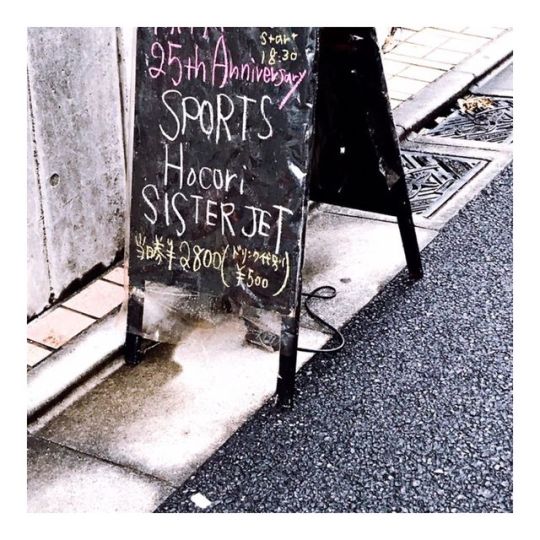 start
18:30
25th Anniversary
SPORTS
Hocori
SISTER JET
当券¥2800(ドリンク代別
¥500)